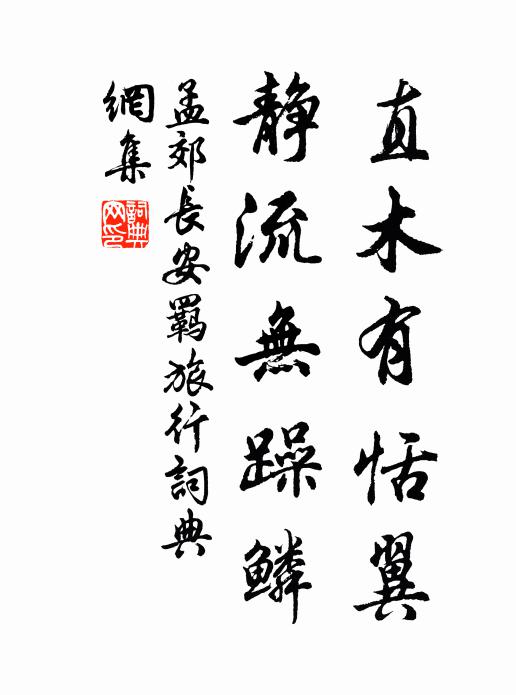 直木有恬翼
静流無躁鱗
孟郊長安羈旅行詞典
網集
詞典
网印